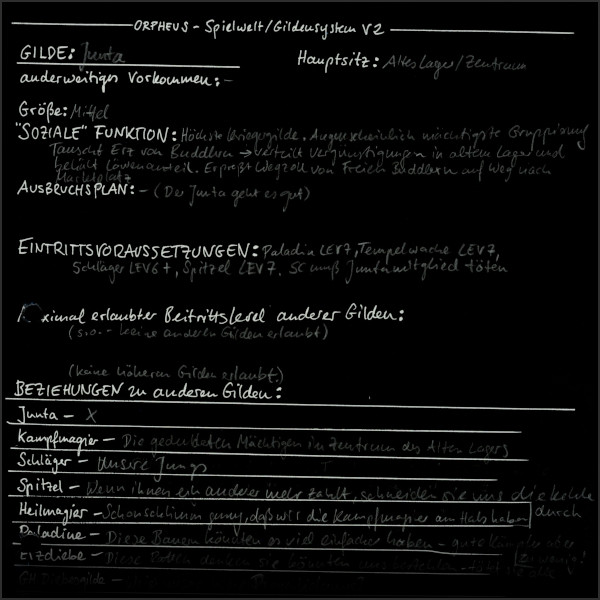 ORPHEUS - Spielwelt/Gildensystem V2
GILDE: Junta
Hauptsitz: Altes Lager/Zentrum
anderweitiges Vorkommen: -
Größe: Mittel
"SOZIALE" FUNKTION: Höchste Kriegergilde. Augenscheinlich mächtigste Gruppierung
Tauscht Erz von Buddlern → verteilt Vergünstigungen in altem Lager und
behält Löwenanteil. Erpreßt Wegzoll von Freien Buddlern auf Weg nach
Marktplatz
AUSBRUCHSPLAN: - (Der Junta geht es gut)
EINTRITTSVORAUSSETZUNGEN: Paladin LEV7, Tempelwache LEV7,
Schläger LEV6+, Spitzel LEV7. SC muß Juntamitglied töten
ximal erlaubter Beitrittslevel anderer Gilden:
(s.o. - keine anderen Gilden erlaubt)
(keine höheren Gilden erlaubt.)
BEZIEHUNGEN zu anderen Gilden:
Junta - X
Kampfmagier - Die geduldeten Mächtigen im Zentrum des Alten Lagers
Schläger - Unsere Jungs
Spitzel - Wenn ihnen ein anderer mehr zahlt, schneiden sie uns die Kehle
durch
Heilmagier - Schon schlimm genug, daß wir die Kampfmagier am Hals haben
Paladine - Diese Bauern könnten es viel einfacher haben - gute Kämpfer aber
Erzdiebe - Diese Ratten denken sie könnten uns
GH Diebesgilde -